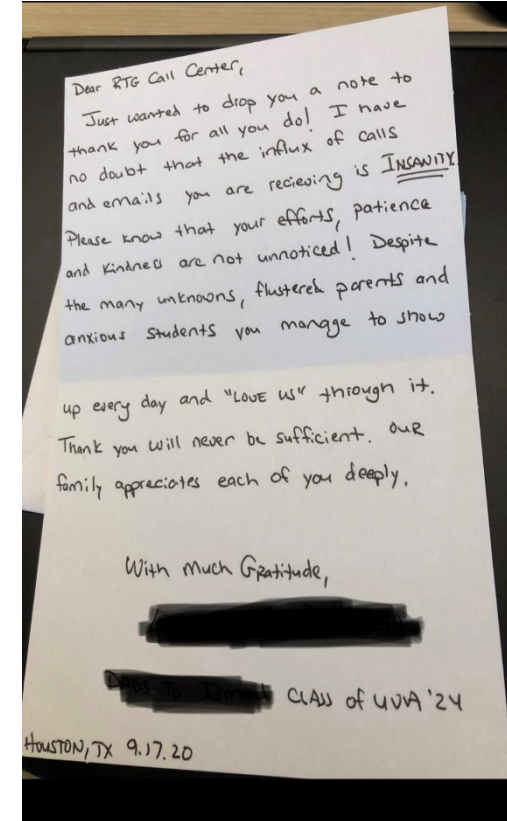 Dear RTG Call Center,
Just wanted to drop you a note to
thank you for all you do! I have
no doubt that the influx of calls
and emails you are recieving is INSANITY.
Please know that your efforts, patience
and kindness are not unnoticed! Despite
the many unknowns, flustered parents and
anxious students you manage to show
up every day and "LOVE US" through it.
Thank you will never be sufficient. OUR
family appreciates each of you deeply.
With Much Gratitude,
CLASS of UVA '24
HOUSTON, TX 9.17.20